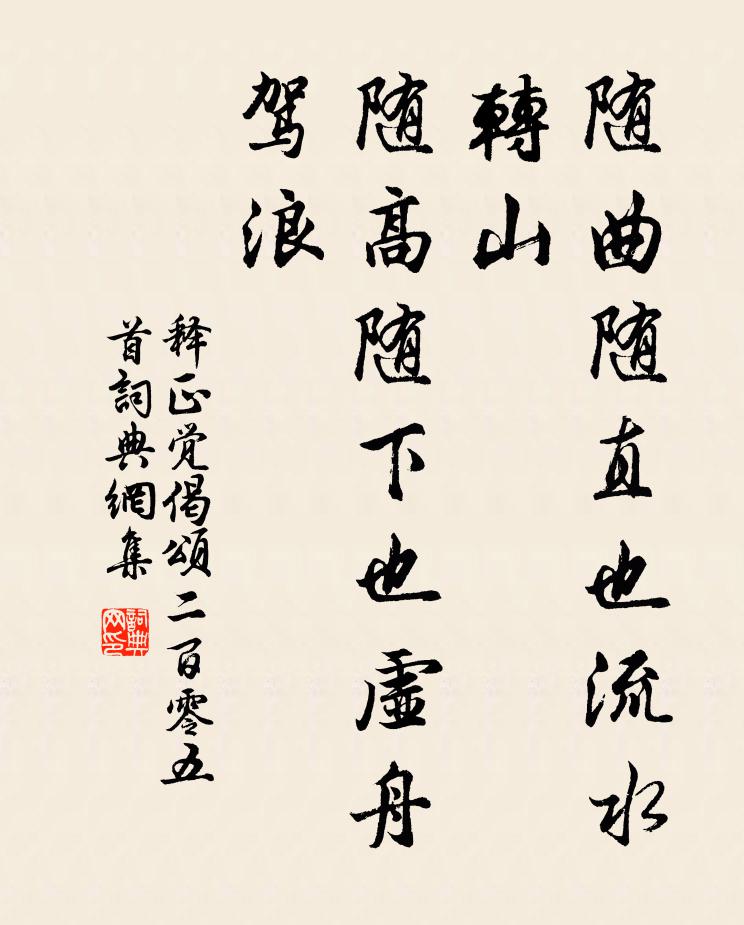 随曲随直也流水
轉山
随高随下也虚舟
驾浪
释正觉偈頌二百零五
首詞典網集
詞典
网印